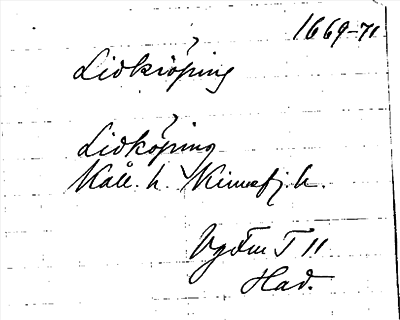 1669-71
Lidkiöping
Lidköping
Kåll. h. Kinnefj. h.
VgFmT II
Had.